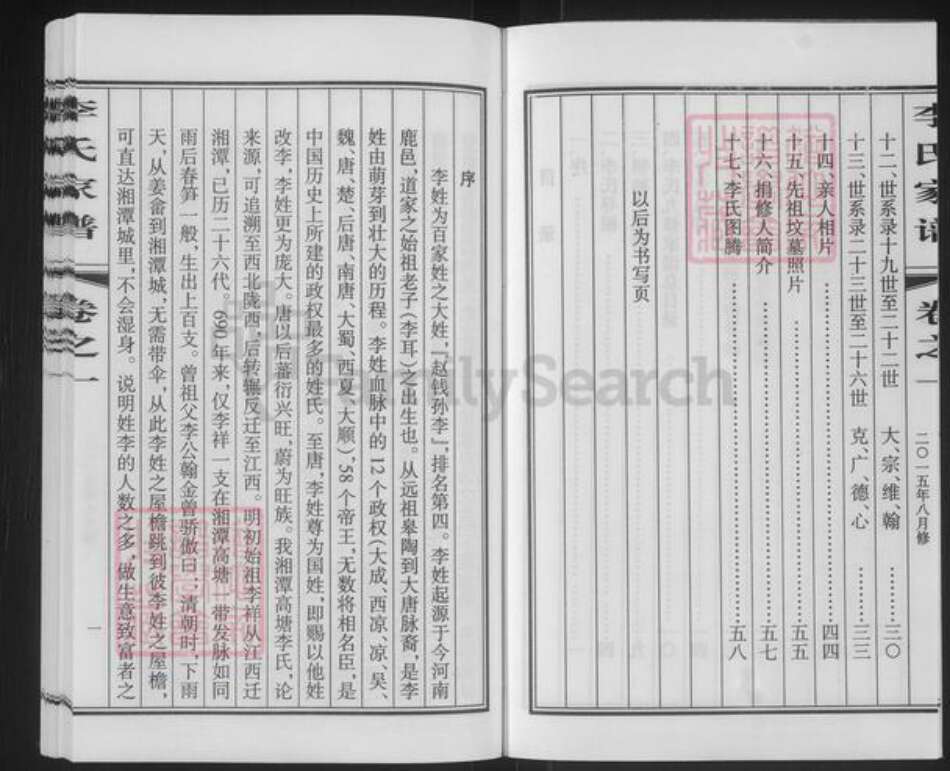 李氏家谱 卷之一 二〇一五年八月修
十二、世系录十九世至二十二世 大、宗、维、翰 ……三〇
十三、世系录二十三世至二十六世 克、广、德、心 ……三三
十四、亲人相片 ……四四
十五、先祖坟墓照片 ……五五
十六、捐修人简介 ……五七
十七、李氏图腾 ……五八
以后为书写页
序
李姓为百家姓之大姓,『赵钱孙李』,排名第四。李姓起源于今河南
鹿邑,道家之始祖老子(李耳)之出生也。从远祖皋陶到大唐脉裔,是李
姓由萌芽到壮大的历程。李姓血脉中的12个政权(大成、西凉、凉、吴、
魏、唐、楚、后唐、南唐、大蜀、西夏、大顺),58个帝王,无数将相名臣,是
中国历史上所建的政权最多的姓氏。至唐,李姓尊为国姓,即赐以他姓
改李,李姓更为庞大。唐以后蕃衍兴旺,蔚为旺族。我湘潭高塘李氏,论
来源,可追溯至西北陇西,后转辗反迁至江西。明初始祖李祥从江西迁
湘潭,已历二十六代。690年来,仅李祥一支在湘潭高塘一带发脉如同
雨后春笋一般,生出上百支。曾祖父李公翰金曾骄傲曰:清朝时,下雨
天,从姜畲到湘潭城,无需带伞,从此李姓之屋檐跳到彼李姓之屋檐,
可直达湘潭城里,不会湿身。说明姓李的人数之多,做生意致富者之
李氏家谱 卷之一
一
FamilySearch